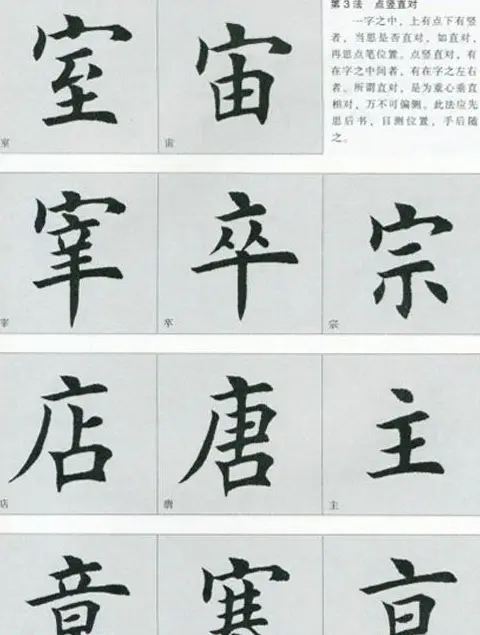 第3法 点竖直对
一字之中，上有点下有竖
者，当思是否直对，如直对，
再思点笔位置。点竖直对，有
在字之中间者，有在字之左右
者。所谓直对，是为重心垂直
相对，万不可偏侧。此法应先
思后书，目测位置，手后随
之。
室 宙
室 宙
宰 卒 宗
宰 卒 宗
店 唐 主
店 唐 主